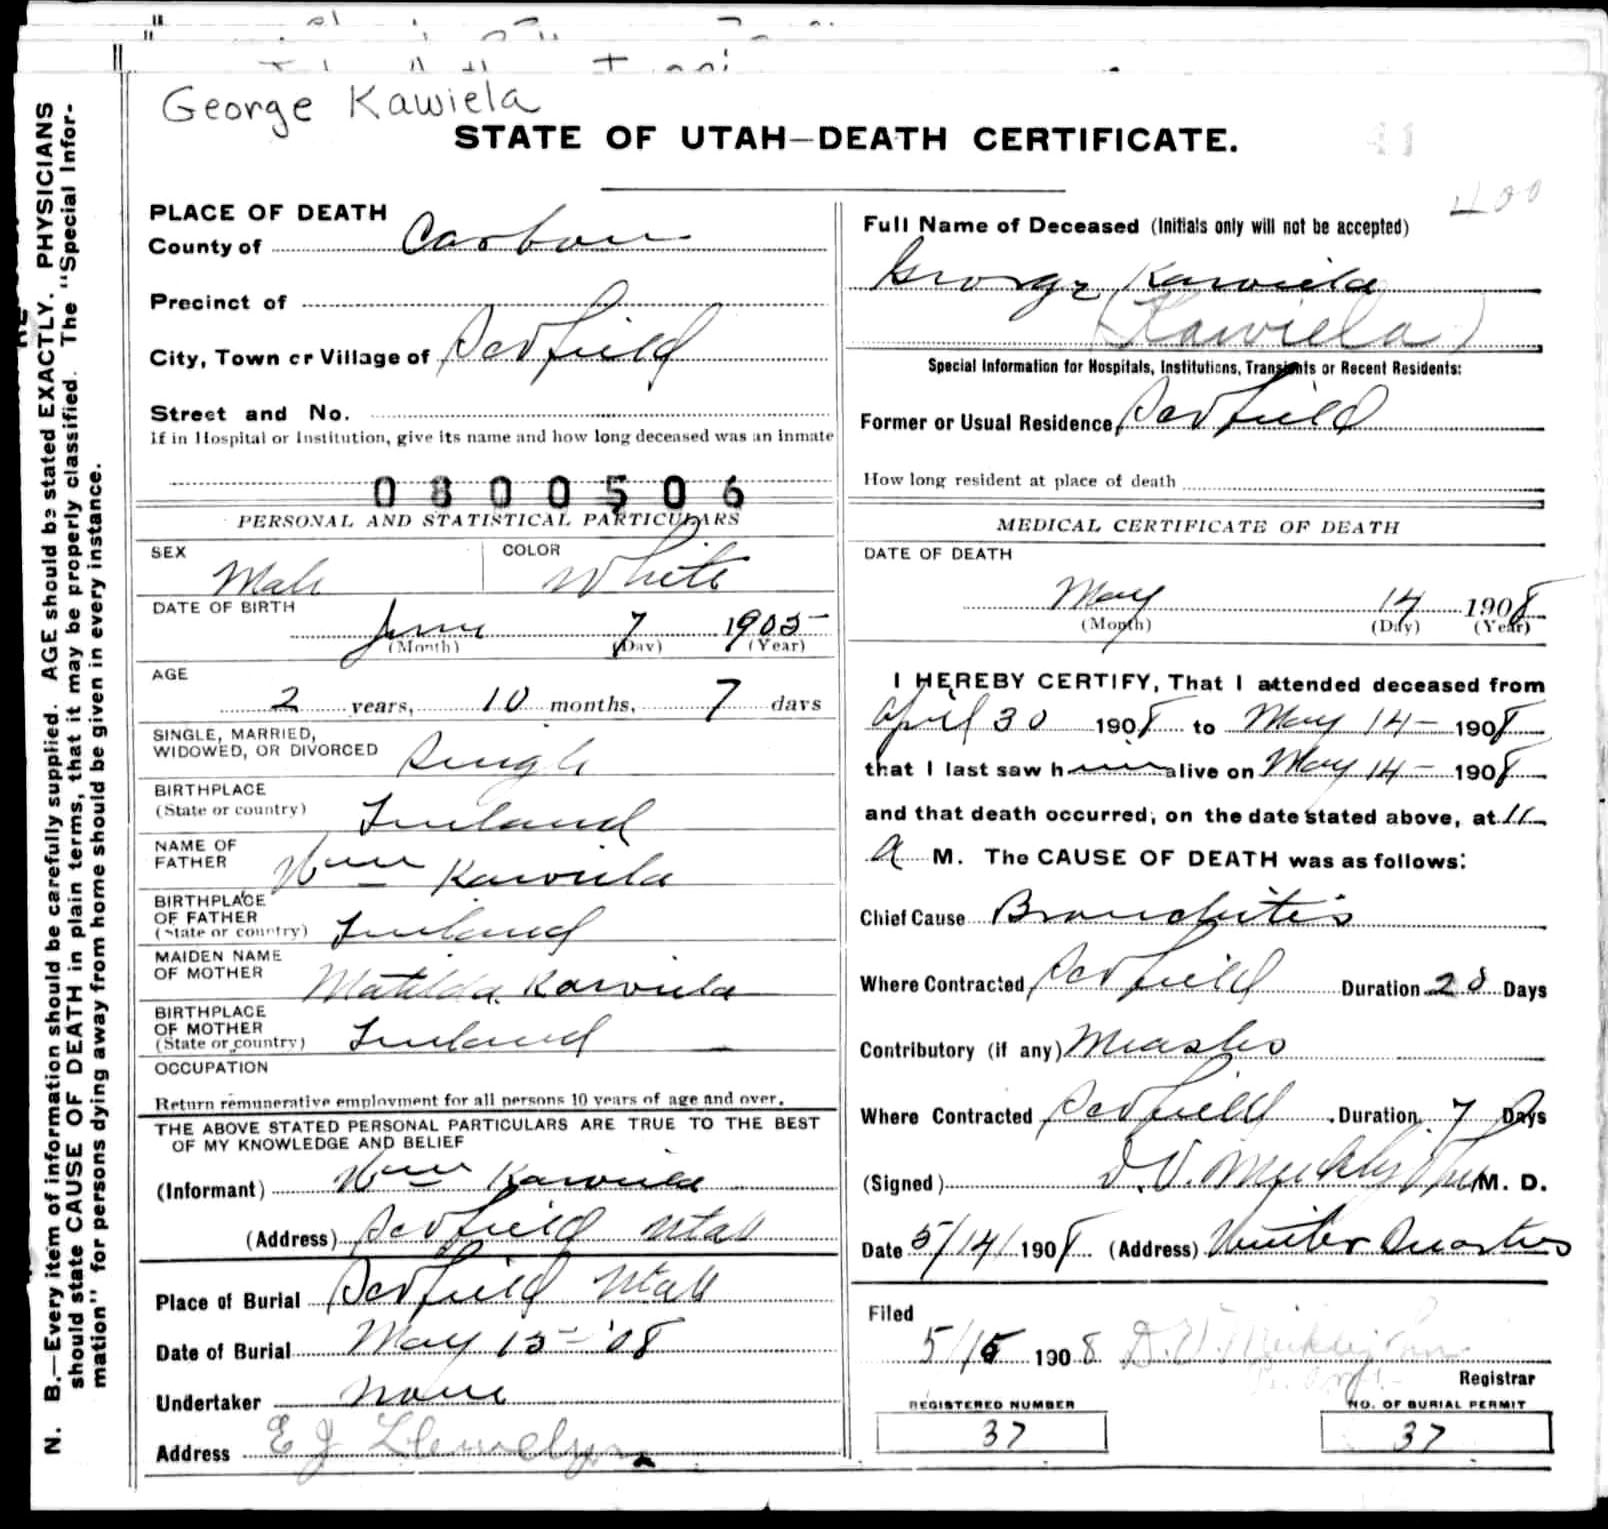 George Kawiela
STATE OF UTAH—DEATH CERTIFICATE.
41
400
PLACE OF DEATH
County of Carbon
Precinct of
City, Town or Village of Scofield
Street and No.
If in Hospital or Institution, give its name and how long deceased was an inmate
0800506
PERSONAL AND STATISTICAL PARTICULARS
SEX Male COLOR White
DATE OF BIRTH
June 7 1905
(Month) (Day) (Year)
AGE
2 years, 10 months, 7 days
SINGLE, MARRIED,
WIDOWED, OR DIVORCED Single
BIRTHPLACE
(State or country) Finland
NAME OF
FATHER Wm Kawiela
BIRTHPLACE
OF FATHER
(State or country) Finland
MAIDEN NAME
OF MOTHER Matilda Kawiela
BIRTHPLACE
OF MOTHER
(State or country) Finland
OCCUPATION
Return remunerative employment for all persons 10 years of age and over.
THE ABOVE STATED PERSONAL PARTICULARS ARE TRUE TO THE BEST
OF MY KNOWLEDGE AND BELIEF
(Informant) Wm Kawiela
(Address) Scofield Utah
Place of Burial Scofield Utah
Date of Burial May 15 - '08
Undertaker None
Address E J Llewelyn
Full Name of Deceased (Initials only will not be accepted)
George Kawiela
(Kawiela)
Special Information for Hospitals, Institutions, Transients or Recent Residents:
Former or Usual Residence Scofield
How long resident at place of death
MEDICAL CERTIFICATE OF DEATH
DATE OF DEATH
May 14 1908
(Month) (Day) (Year)
I HEREBY CERTIFY, That I attended deceased from
April 30 1908 to May 14 - 1908
that I last saw him alive on May 14 - 1908
and that death occurred, on the date stated above, at 11
A M. The CAUSE OF DEATH was as follows:
Chief Cause Bronchitis
Where Contracted Scofield Duration Days
Contributory (if any) Measles
Where Contracted Scofield Duration 7 Days
(Signed) M. D.
Date 5/14/1908 (Address) Winter Quarters
Filed
5/15 1908
Registrar
REGISTERED NUMBER
37
NO. OF BURIAL PERMIT
37
N. B.—Every item of information should be carefully supplied. AGE should be stated EXACTLY. PHYSICIANS
should state CAUSE OF DEATH in plain terms, that it may be properly classified. The "Special Infor-
mation" for persons dying away from home should be given in every instance.